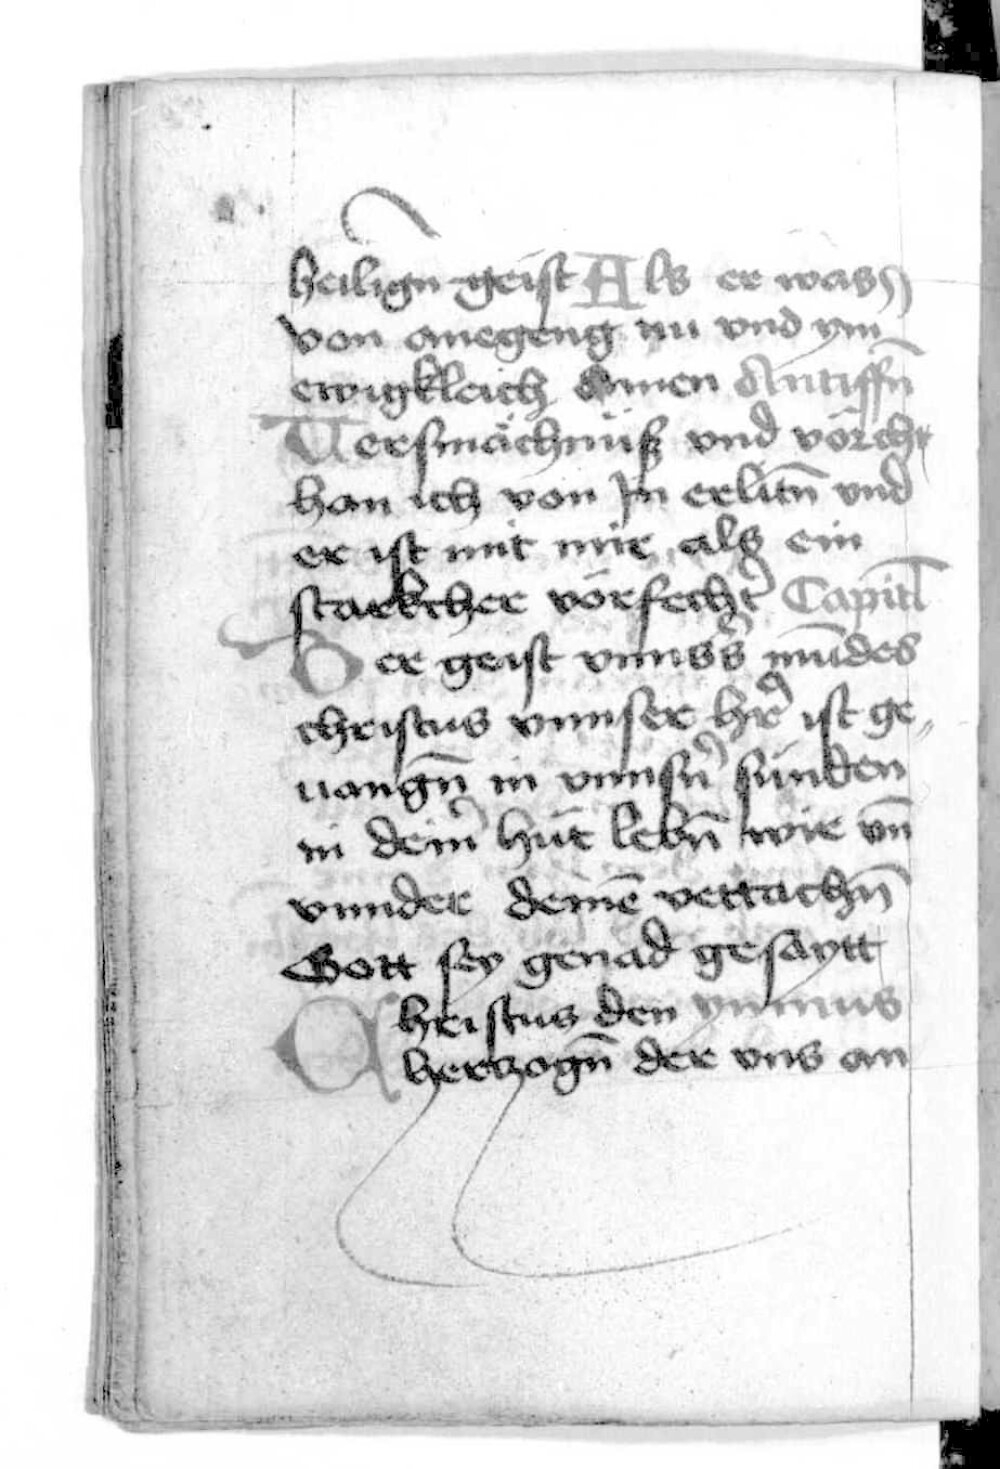 heiligñ geist Als er was
von anegeng nu vnd ym̄
ewigkleich Amen Antiffñ
Versmächnüß vnd vörcht
han ich von Jn erlitñ vnd
er ist mit mir als ein
starkcher vörfecht̾ Capitl̄
Der geist vnnss̾s mūdes
christus vnnser hr̄̾ ist ge„
uangñ in vnnsn̾ sünden
in dein̾ hůt lebñ wir vñ
vnnder deinē vettachñ
Gott sey genad gesaytt
Christus den ymnus
hertzogñ der vns an